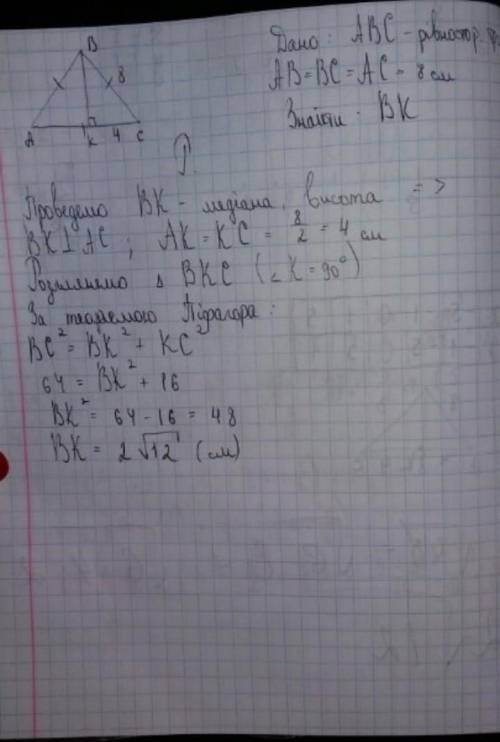 B
8
A
K
4
C
Дано: ABC - рівностор.
AB=BC=AC= 8 см
Знайти: BK
Проведемо BK - медіана, висота =>
BK⊥AC; AK=KC= 8/2 = 4 см
Розглянемо Δ BKC (∠K=90°)
За теоремою Піфагора:
BC² = BK² + KC²
64 = BK² + 16
BK² = 64-16 = 48
BK = 2√12 (см)